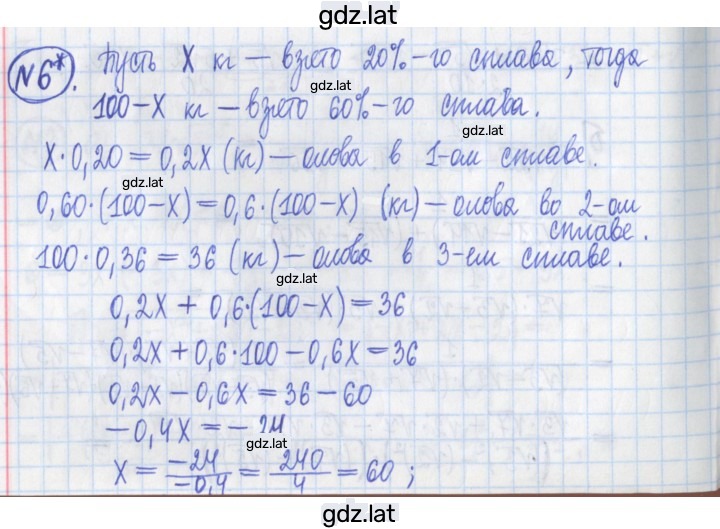 gdz.lat
№6*. Пусть X кг — взято 20%-го сплава, тогда
gdz.lat
100−X кг — взято 60%-го сплава.
X·0,20 = 0,2X (кг) — олова в 1-ом сплаве.
gdz.lat
0,60·(100−X) = 0,6·(100−X) (кг) — олова во 2-ом
сплаве.
100·0,36 = 36 (кг) — олова в 3-ем сплаве.
gdz.lat
0,2X + 0,6·(100−X) = 36
0,2X + 0,6·100 − 0,6X = 36
0,2X − 0,6X = 36 − 60
−0,4X = −24
gdz.lat
X = −24/−0,4 = 240/4 = 60 ;
gdz.lat